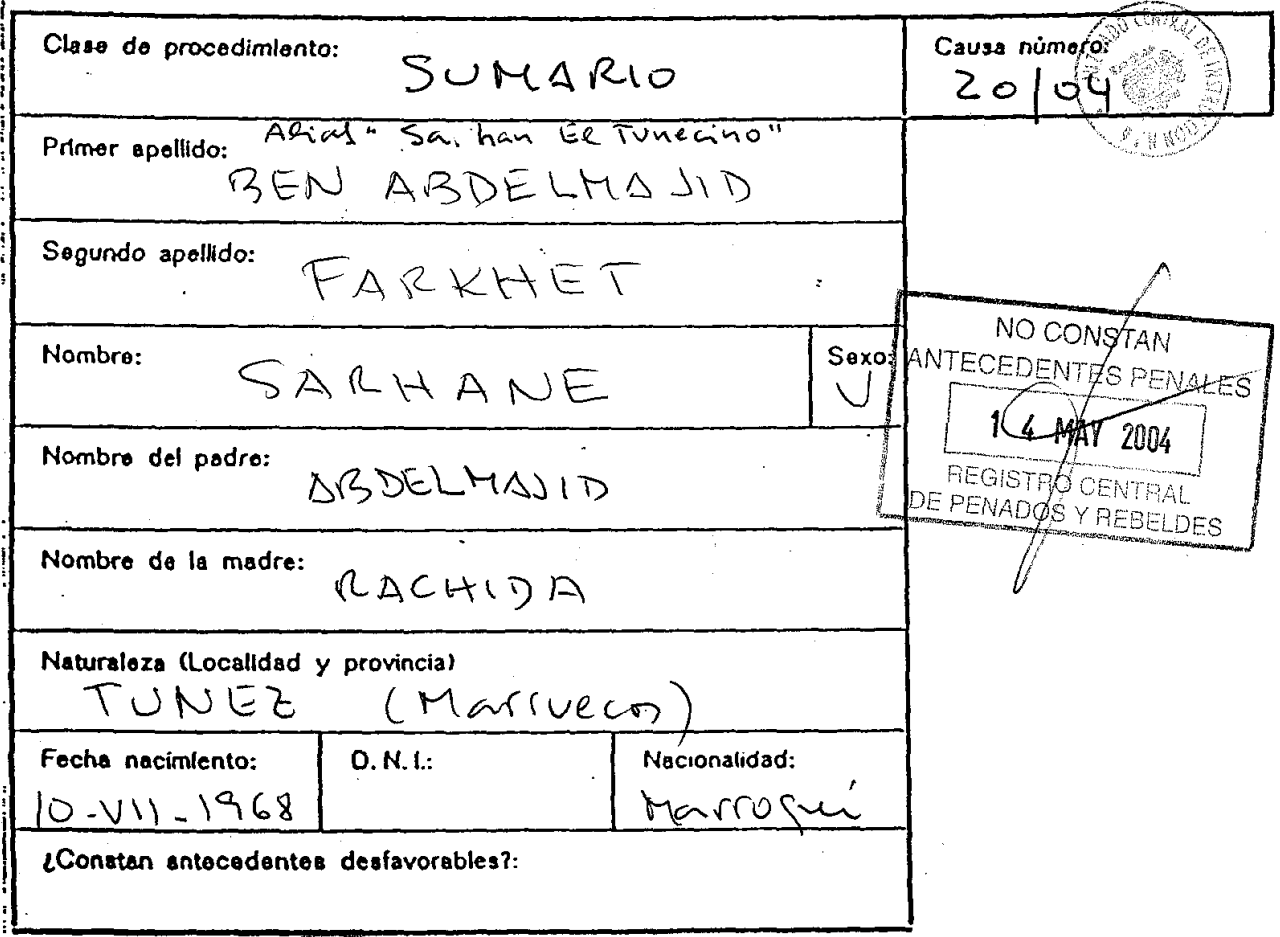 Clase de procedimiento:
SUMARIO
Causa número:
20/04
JUZGADO CENTRAL DE INSTRUCCION N.º 6
Alias "Sarhan El Tunecino"
Primer apellido:
BEN ABDELMAJID
Segundo apellido:
FARKHET
Nombre:
SARHANE
Sexo:
V
NO CONSTAN
ANTECEDENTES PENALES
14 MAY 2004
REGISTRO CENTRAL
DE PENADOS Y REBELDES
Nombre del padre:
ABDELMAJID
Nombre de la madre:
RACHIDA
Naturaleza (Localidad y provincia)
TUNEZ (Marruecos)
Fecha nacimiento:
10-VII-1968
D.N.I.:
Nacionalidad:
Marroquí
¿Constan antecedentes desfavorables?: